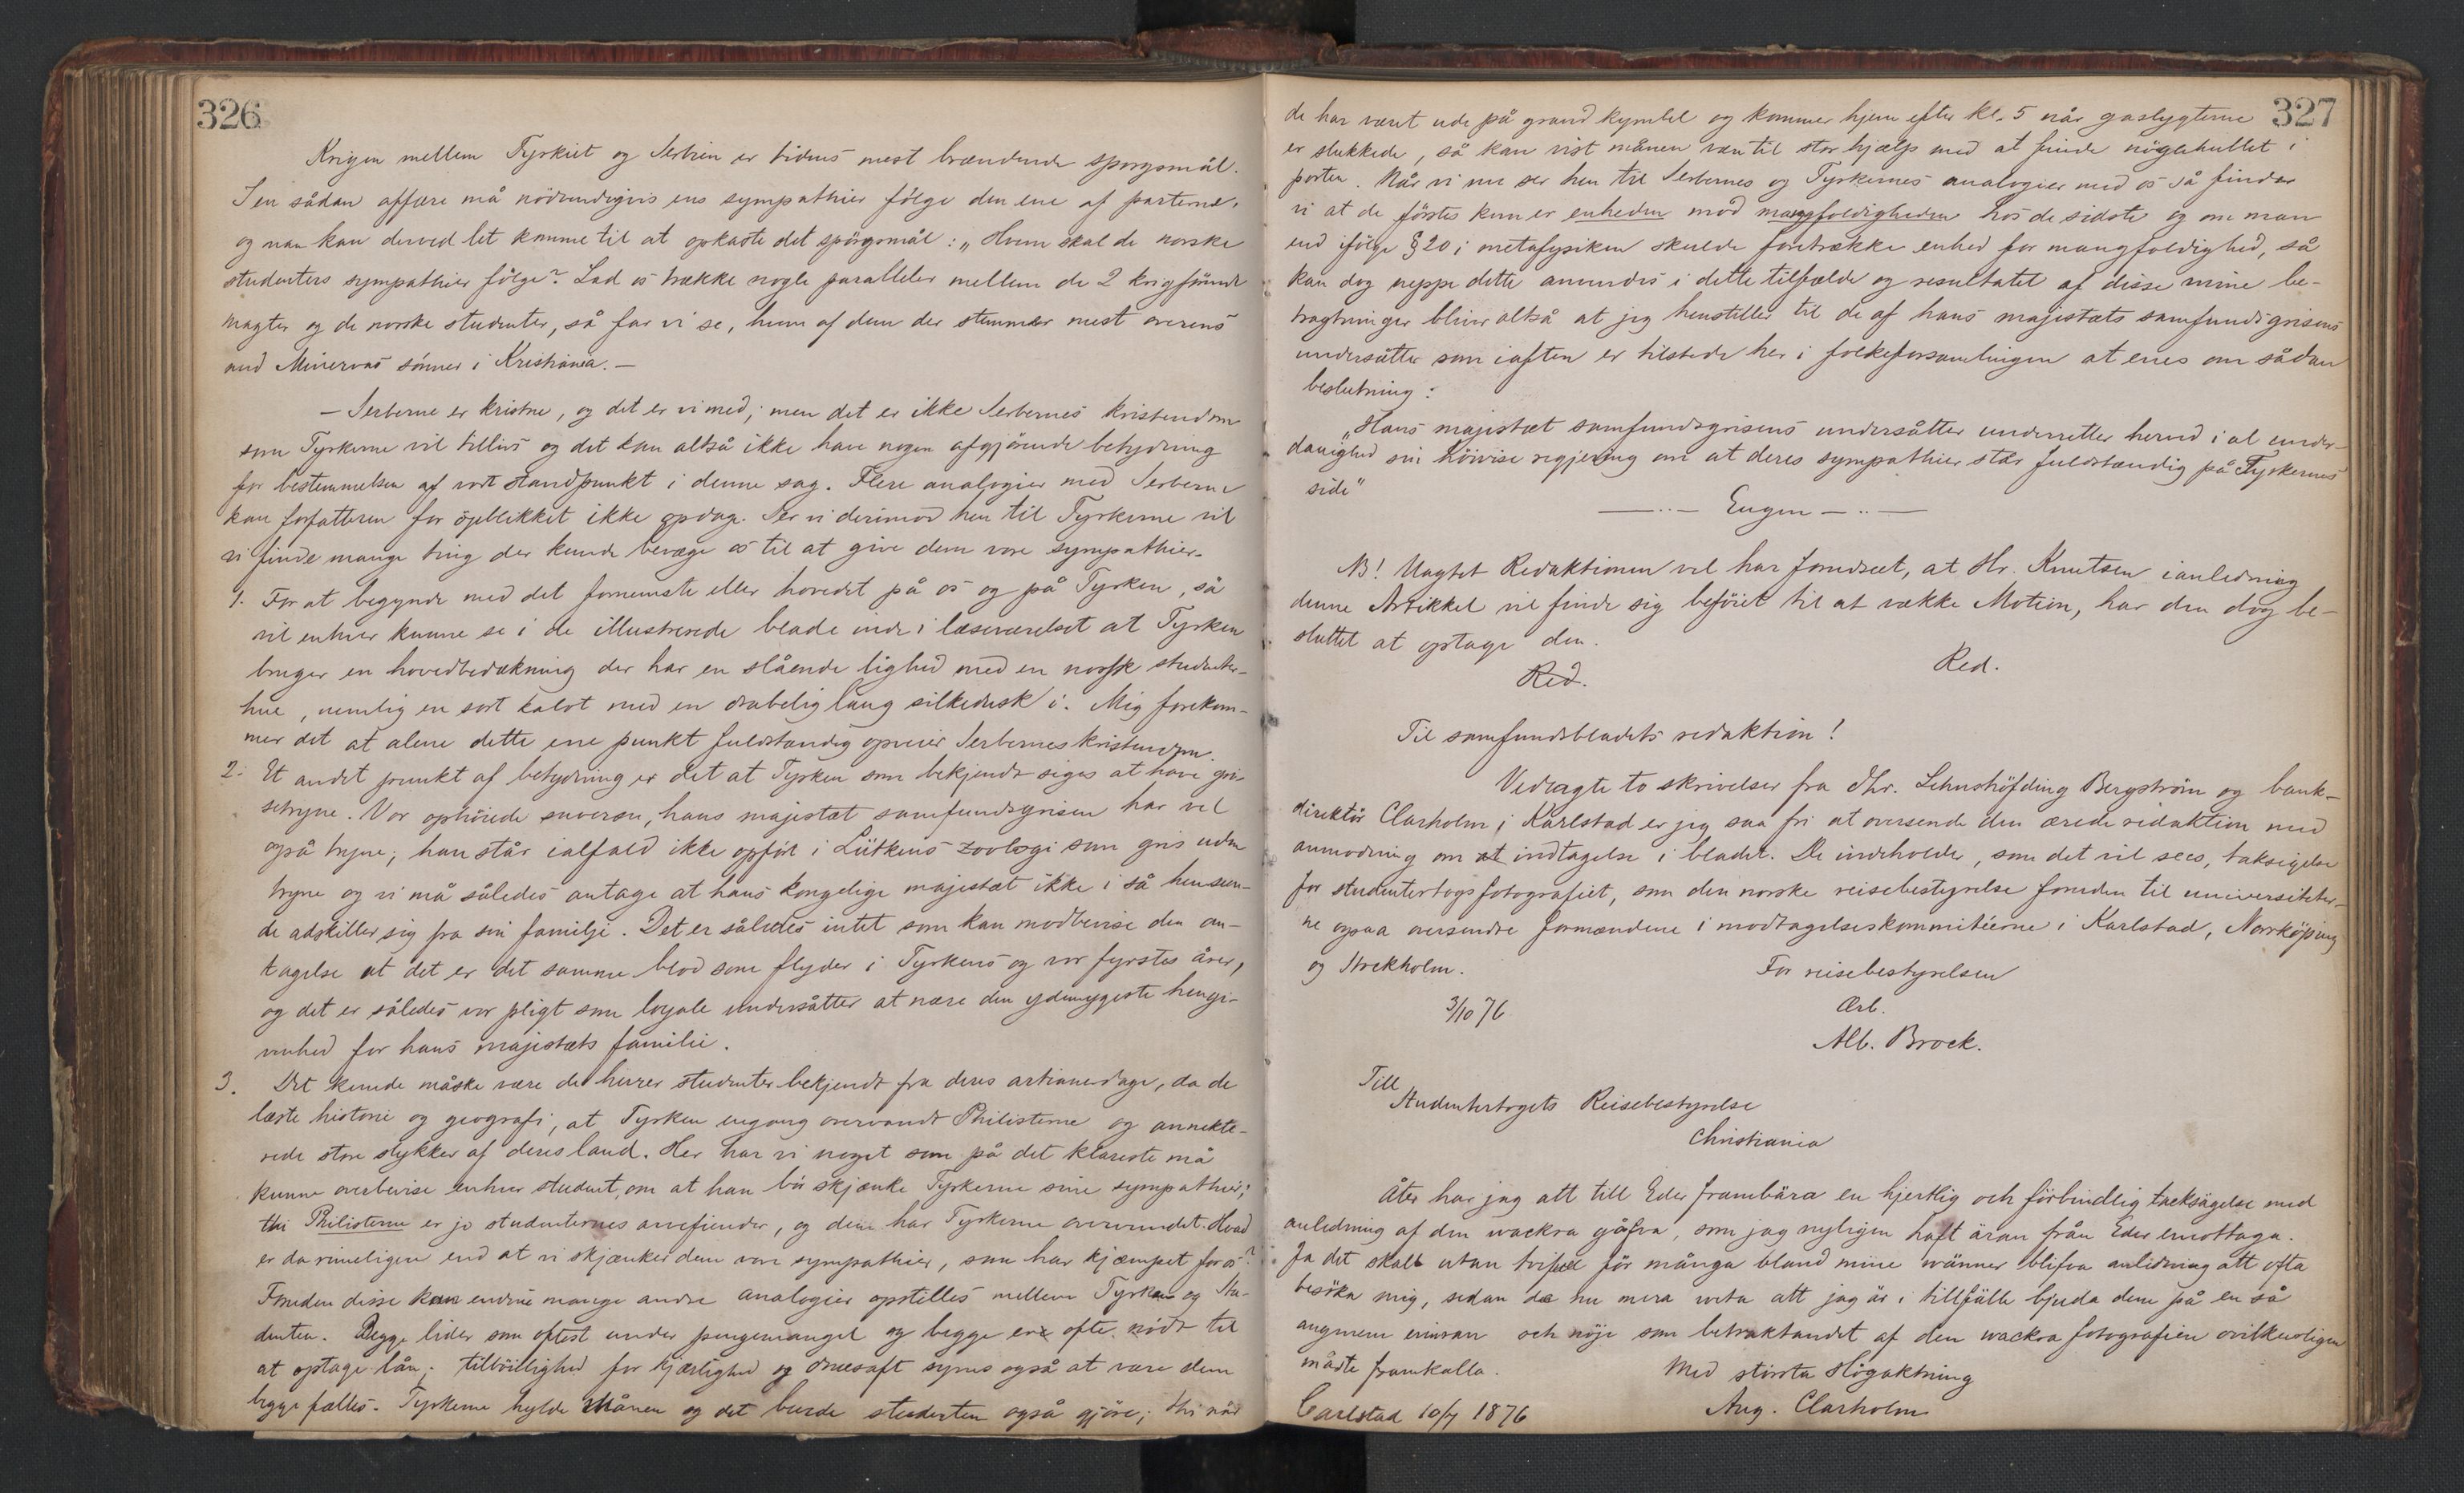 326
Krigen mellem Tyrkiet og Serbien er tidens mest brændende spørgsmål.
I en sådan affære må nödvendigvis ens sympathier fölge den ene af parterne,
og man kan derved let komme til at opkaste det spörgsmål: „Hvem skal de norske
studenters sympathier fölge? Lad os trække nogle paralleler mellem de 2 krigförende
magter og de norske studenter, så får vi se, hvem af dem der stemmer mest overens
med Minervas sönner i Kristiania. —
— Serberne er kristne, og det er vi med; men det er ikke Serbernes kristendom
som Tyrkerne vil tillivs og det kan altså ikke have nogen afgjörende betydning
for bestemmelsen af vort standpunkt i denne sag. Flere analogier med Serberne
kan forfatteren for öjeblikket ikke opdage. Ser vi derimod hen til Tyrkerne vil
vi finde mange ting der kunde bevæge os til at give dem vore sympathier.
1. For at begynde med det fornemste eller hovedet på os og på Tyrken, så
vil enhver kunne se i de illustrerede blade inde i læseværelset at Tyrken
bruger en hovedbedækning der har en slående lighed med en norsk studenter-
hue, nemlig en sort kalot med en drabelig lang silkedusk i. Mig forekom-
mer det at alene dette ene punkt fuldstændig opveier Serbernes kristendom.
2. Et andet punkt af betydning er det at Tyrken som bekjendt siges at have gri-
setryne. Vor ophöiede suveræn, hans majestæt samfundsgrisen har vel
også tryne; han står ialfald ikke opfört i Lütkens zoologi som gris uden
tryne og vi må således antage at hans kongelige majestæt ikke i så henseen-
de adskiller sig fra sin familje. Det er således intet som kan modbevise den an-
tagelse at det er det samme blod som flyder i Tyrkens og vor fyrstes årer,
og det er således vor pligt som loyale undersåtter at nære den ydmygeste hengi-
venhed for hans majestæts familie.
3. Det kunde måske være de herrer studenter bekjendt fra deres artianerdage, da de
læste historie og geografi, at Tyrken engang overvandt Philisterne og annekte-
rede store stykker af deres land. Her har vi noget som på det klareste må
kunne overbevise enhver student, om at han bör skjænke Tyrkerne sine sympathier;
thi Philisterne er jo studenternes arvefiender, og dem har Tyrkerne overvundet. Hvad
er da rimeligere end at vi skjænker dem vore sympathier, som har kjæmpet for os?
Foruden disse kan endnu mange andre analogier opstilles mellem Tyrken og Stu-
denten. Begge lider som oftest under pengemangel og begge er ofte nödt til
at optage lån; tilböilighed for kjærlighed og druesaft synes også at være dem
begge fælles. Tyrkerne hylde Månen og det burde studenten også gjöre; thi når
327
de har været ude på grand kyndel og kommer hjem efter kl. 5 når gaslygterne
er slukkede, så kan vist månen være til stor hjælp med at finde nöglehullet i
porten. Når vi nu ser hen til Serbernes og Tyrkernes analogier med os så finder
vi at de förstes kun er enheden mod mangfoldigheden hos de sidste og om man
end ifölge § 20 i metafysiken skulde foretrække enhed for mangfoldighed, så
kan dog neppe dette anvendes i dette tilfælde og resultatet af disse mine be-
tragtninger bliver altså at jeg henstiller til de af hans majestæts samfundsgrisens
undersåtter som iaften er tilstede her i folkeforsamlingen at enes om sådan
beslutning:
„Hans majestæt samfundsgrisens undersåtter underretter herved i al under-
danighed sin höivise regjering om at deres sympathier står fuldstændig på Tyrkernes
side"
—··— Eugen —··—
NB! Uagtet Redaktionen vel har forudseet, at Hr. Knutsen ianledning
denne Artikkel vil finde sig beföiet til at vække Motion, har den dog be-
sluttet at optage den.
Red.
Red.
Til samfundsbladets redaktion!
Vedlagte to skrivelser fra Hhr. Lehnshöfding Bergström og bank-
direktör Clarholm i Karlstad er jeg saa fri at oversende den ærede redaktion med
anmodning om at indtagelse i bladet. De indeholder, som det vil sees, taksigelse
for studentertogsfotografiet, som den norske reisebestyrelse foruden til universiteter-
ne ogsaa oversendte formændene i modtagelseskommitéerne i Karlstad, Norrköping
og Stockholm.
For reisebestyrelsen
3/10 76
Ærb.
Alb. Brock.
Till
Studentertogets Reisebestyrelse
Christiania
Åter har jag att till Eder frambära en hjertlig och förbindlig tacksägelse med
anledning af den wackra gåfva, som jag nyligen haft äran från Eder emottaga.
Ja det skall utan tvifvel för många bland mine wänner blifva anledning att ofta
besöka mig, sedan de nu mera veta att jag är i tillfälle bjuda dem på en så
angenem erinran och nöje som betraktandet af den wackra fotografien ovilkorligen
måste framkalla.
Med största Högaktning
Carlstad 10/7 1876
Aug. Clarholm